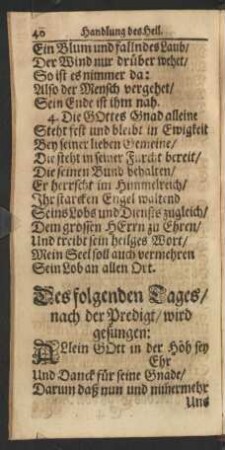 40 Handlung des Heil.
Ein Blum und fallndes Laub/
Der Wind nur drüber wehet/
So ist es nimmer da:
Also der Mensch vergehet/
Sein Ende ist ihm nah.
4. Die GOttes Gnad alleine
Steht fest und bleibt in Ewigkeit
Bey seiner lieben Gemeine/
Die steht in seiner Furcht bereit/
Die seinen Bund behalten/
Er herrscht im Himmelreich/
Ihr starcken Engel waltend
Seins Lobs und Diensts zugleich/
Dem grossen HErrn zu Ehren/
Und treibt sein heilges Wort/
Mein Seel soll auch vermehren
Sein Lob an allen Ort.
Des folgenden Tages/
nach der Predigt/ wird
gesungen:
ALlein GOtt in der Höh sey
Ehr
Und Danck für seine Gnade/
Darum daß nun und nim̄ermehr
Uns